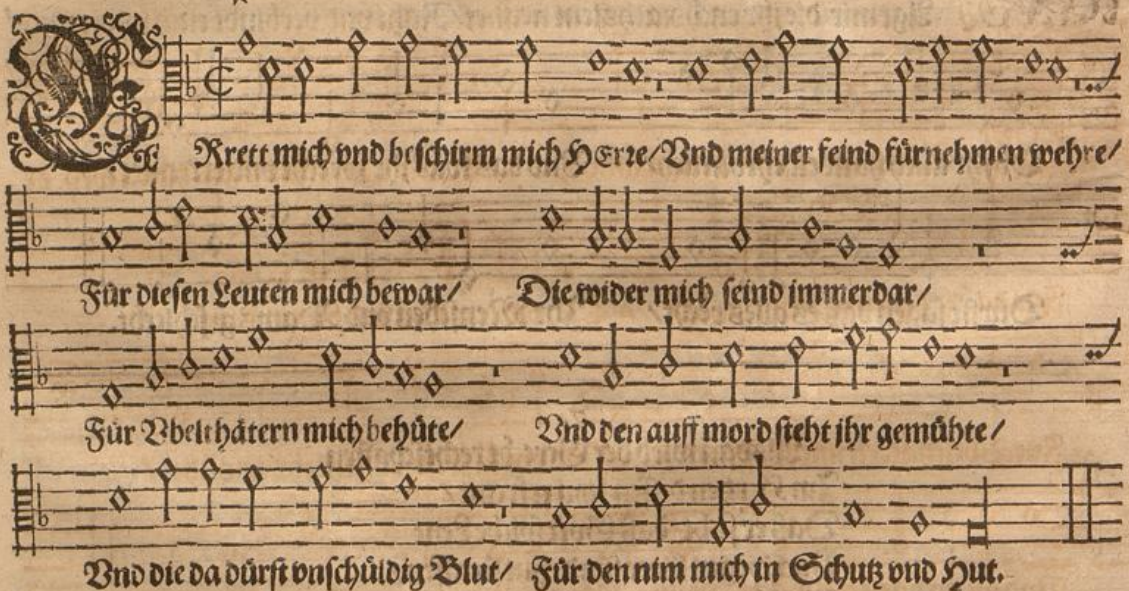 ERrett mich vnd beschirm mich HErre/Vnd meiner feind fürnehmen wehre/
Für diesen Leuten mich bewar/ Die wider mich seind jmmerdar/
Für Vbelthätern mich behüte/ Vnd den auff mord steht jhr gemühte/
Vnd die da dürst vnschüldig Blut/ Für den nim mich in Schutz vnd Hut.